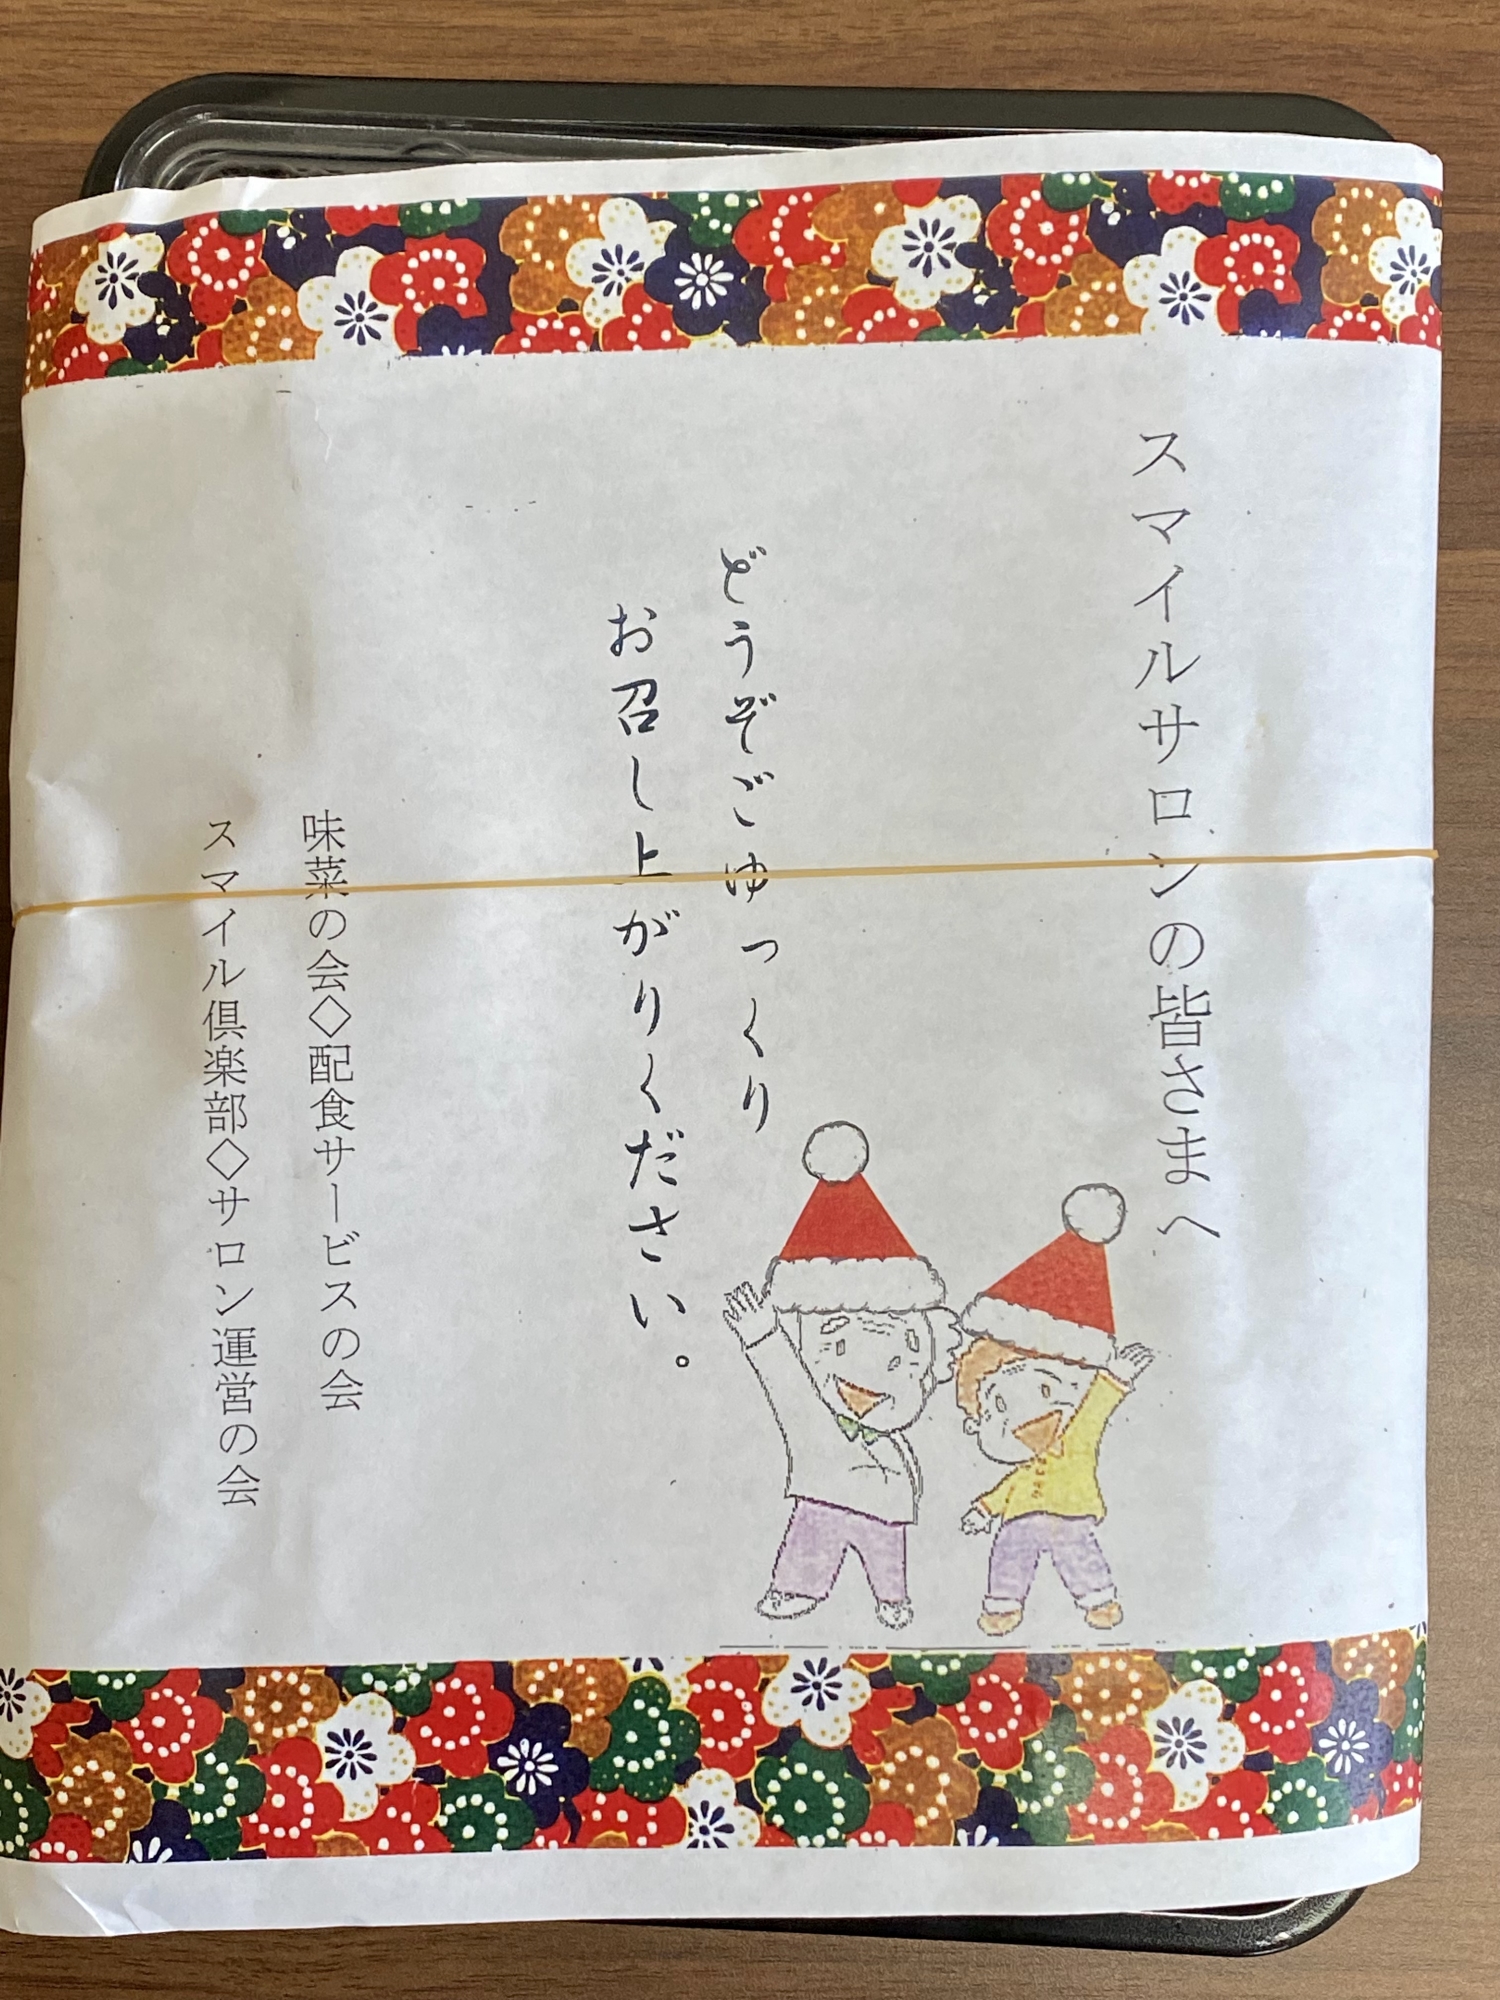 スマイルサロンの皆さまへ
どうぞごゆっくり
お召し上がりください。
味菜の会◇配食サービスの会
スマイル倶楽部◇サロン運営の会